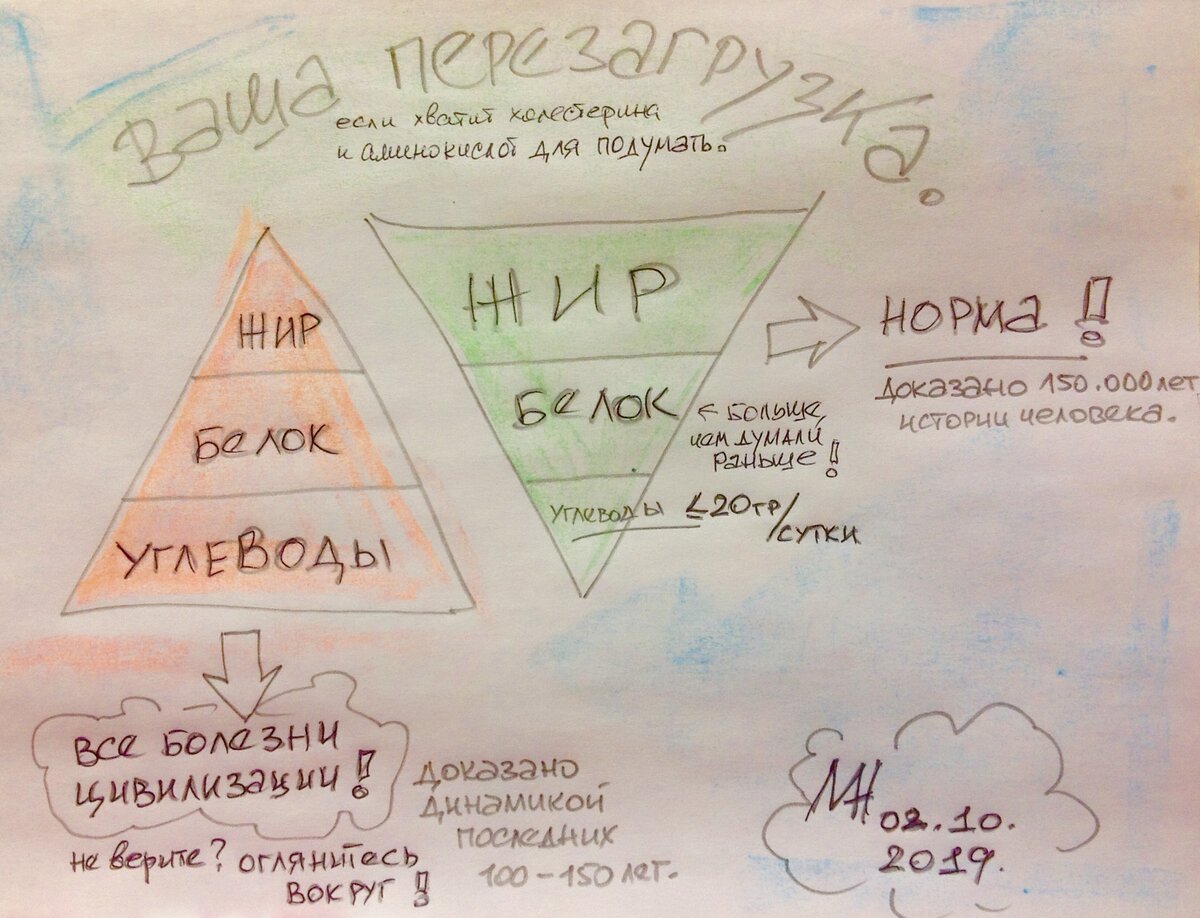 Ваша перезагрузка.
если хватит холестерина
и аминокислот для подумать.
ЖИР
БЕЛОК
УГЛЕВОДЫ
ЖИР
БЕЛОК
← БОЛЬШЕ,
ЧЕМ ДУМАЛИ
РАНЬШЕ!
УГЛЕВОДЫ ≤20гр/
СУТКИ
НОРМА!
ДОКАЗАНО 150.000 ЛЕТ
ИСТОРИИ ЧЕЛОВЕКА.
ВСЕ БОЛЕЗНИ
ЦИВИЛИЗАЦИИ!
не верите? оглянитесь
ВОКРУГ!
ДОКАЗАНО
ДИНАМИКОЙ
ПОСЛЕДНИХ
100-150 ЛЕТ.
МН
02.10.
2019.